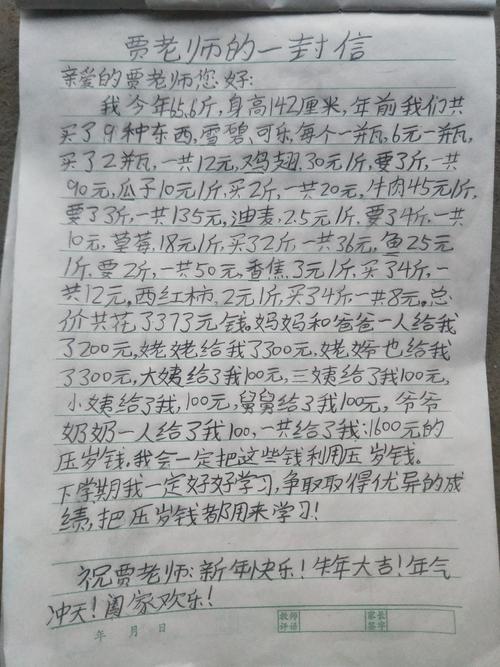 贾老师的一封信
亲爱的贾老师您好:
我今年65.6斤,身高142厘米,年前我们共
买了9种东西,雪碧、可乐每个一并瓦,6元一并瓦,
买了2并瓦,一共12元,鸡翅,30元1斤,要了斤,一共
90元,瓜子10元1斤,买2斤,一共20元,牛肉45元1斤,
要了3斤,一共135元,油麦,2.5元1斤,要了4斤,一共
10元,草莓,18元1斤,买了2斤,一共36元,鱼25元
1斤,要2斤,一共50元,香焦3元1斤,买了4斤,一
共12元,西红柿,2元1斤,买了4斤一共8元。总
价共花了373元钱。妈妈和爸爸一人给我
了200元,姥姥给我了300元,姥爷也给我
了300元,大姨给了我100元,三姨给了我100元,
小姨给了我,100元,舅舅给了我100元,爷爷
奶奶一人给了我100,一共给了我:1600元的
压岁钱。我会一定把这些钱利用压岁钱。
下学期我一定好好学习,争取取得优异的成
绩,把压岁钱都用来学习!
祝贾老师:新年快乐!牛年大吉!年气
冲天!阖家欢乐!
年 月 日 教师评语 家长签字